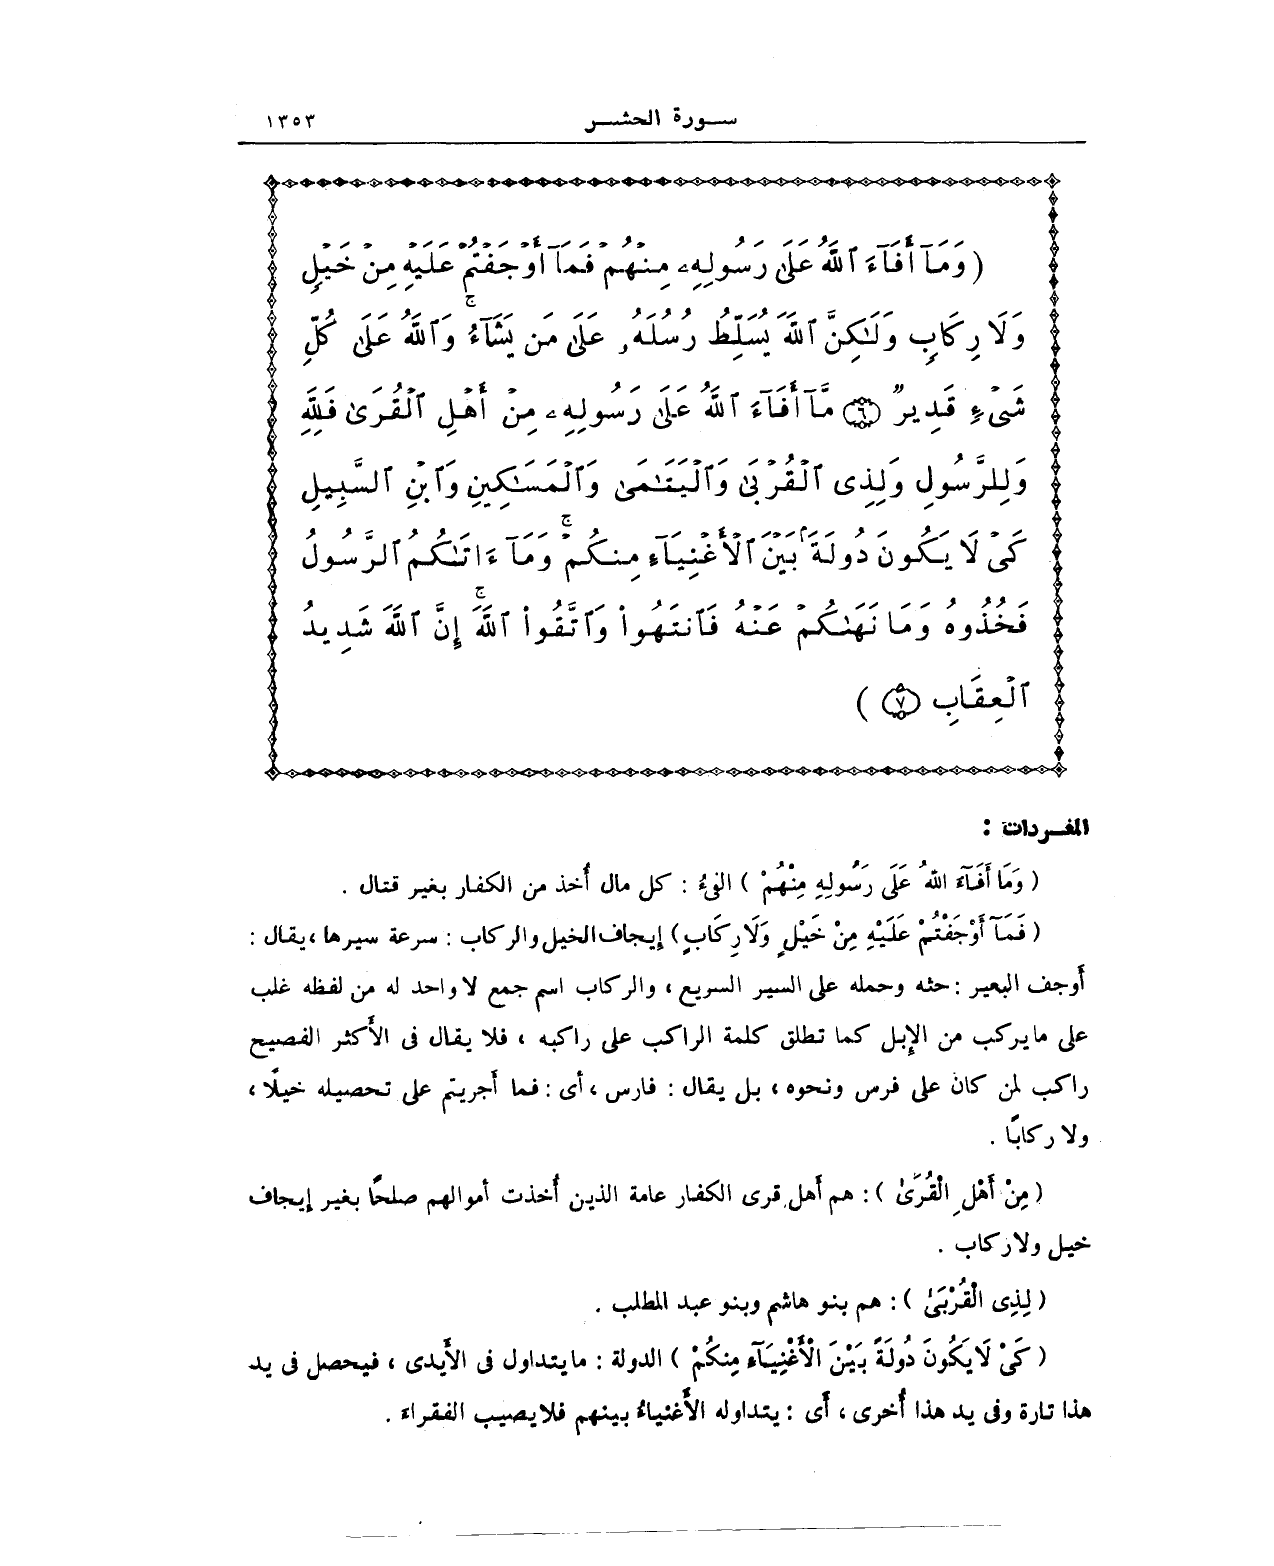 سورة الحشر ١٣٥٣
( وَمَآ أَفَآءَ ٱللَّهُ عَلَىٰ رَسُولِهِۦ مِنْهُمْ فَمَآ أَوْجَفْتُمْ عَلَيْهِ مِنْ خَيْلٍ
وَلَا رِكَابٍ وَلَٰكِنَّ ٱللَّهَ يُسَلِّطُ رُسُلَهُۥ عَلَىٰ مَن يَشَآءُ ۚ وَٱللَّهُ عَلَىٰ كُلِّ
شَىْءٍ قَدِيرٌ ﴿٦﴾ مَّآ أَفَآءَ ٱللَّهُ عَلَىٰ رَسُولِهِۦ مِنْ أَهْلِ ٱلْقُرَىٰ فَلِلَّهِ
وَلِلرَّسُولِ وَلِذِى ٱلْقُرْبَىٰ وَٱلْيَتَٰمَىٰ وَٱلْمَسَٰكِينِ وَٱبْنِ ٱلسَّبِيلِ
كَىْ لَا يَكُونَ دُولَةًۢ بَيْنَ ٱلْأَغْنِيَآءِ مِنكُمْ ۚ وَمَآ ءَاتَىٰكُمُ ٱلرَّسُولُ
فَخُذُوهُ وَمَا نَهَىٰكُمْ عَنْهُ فَٱنتَهُوا۟ وَٱتَّقُوا۟ ٱللَّهَ ۚ إِنَّ ٱللَّهَ شَدِيدُ
ٱلْعِقَابِ ﴿٧﴾ )
المفردات :
( وَمَا أَفَآءَ اللهُ عَلَى رَسُولِهِ مِنْهُمْ ) الفيءُ : كل مال أُخذ من الكفار بغير قتال .
( فَمَآ أَوْجَفْتُمْ عَلَيْهِ مِنْ خَيْلٍ وَلَا رِكَابٍ ) إيجاف الخيل والركاب : سرعة سيرها ، يقال :
أَوجف البعير : حثه وحمله على السير السريع ، والركاب اسم جمع لا واحد له من لفظه غلب
على ما يركب من الإبل كما تطلق كلمة الراكب على راكبه ، فلا يقال فى الأكثر الفصيح
راكب لمن كان على فرس ونحوه ، بل يقال : فارس ، أى : فما أجريتم على تحصيله خيلًا ،
ولا ركابًا .
( مِنْ أَهْلِ الْقُرَىٰ ) : هم أهل قرى الكفار عامة الذين أُخذت أموالهم صلحًا بغير إيجاف
خيل ولا ركاب .
( لِذِى الْقُرْبَىٰ ) : هم بنو هاشم وبنو عبد المطلب .
( كَىْ لَا يَكُونَ دُولَةً بَيْنَ الْأَغْنِيَآءِ مِنكُمْ ) الدولة : ما يتداول فى الأَيدى ، فيحصل فى يد
هذا تارة وفى يد هذا أُخرى ، أَى : يتداوله الأَغنياءُ بينهم فلا يصيب الفقراء .